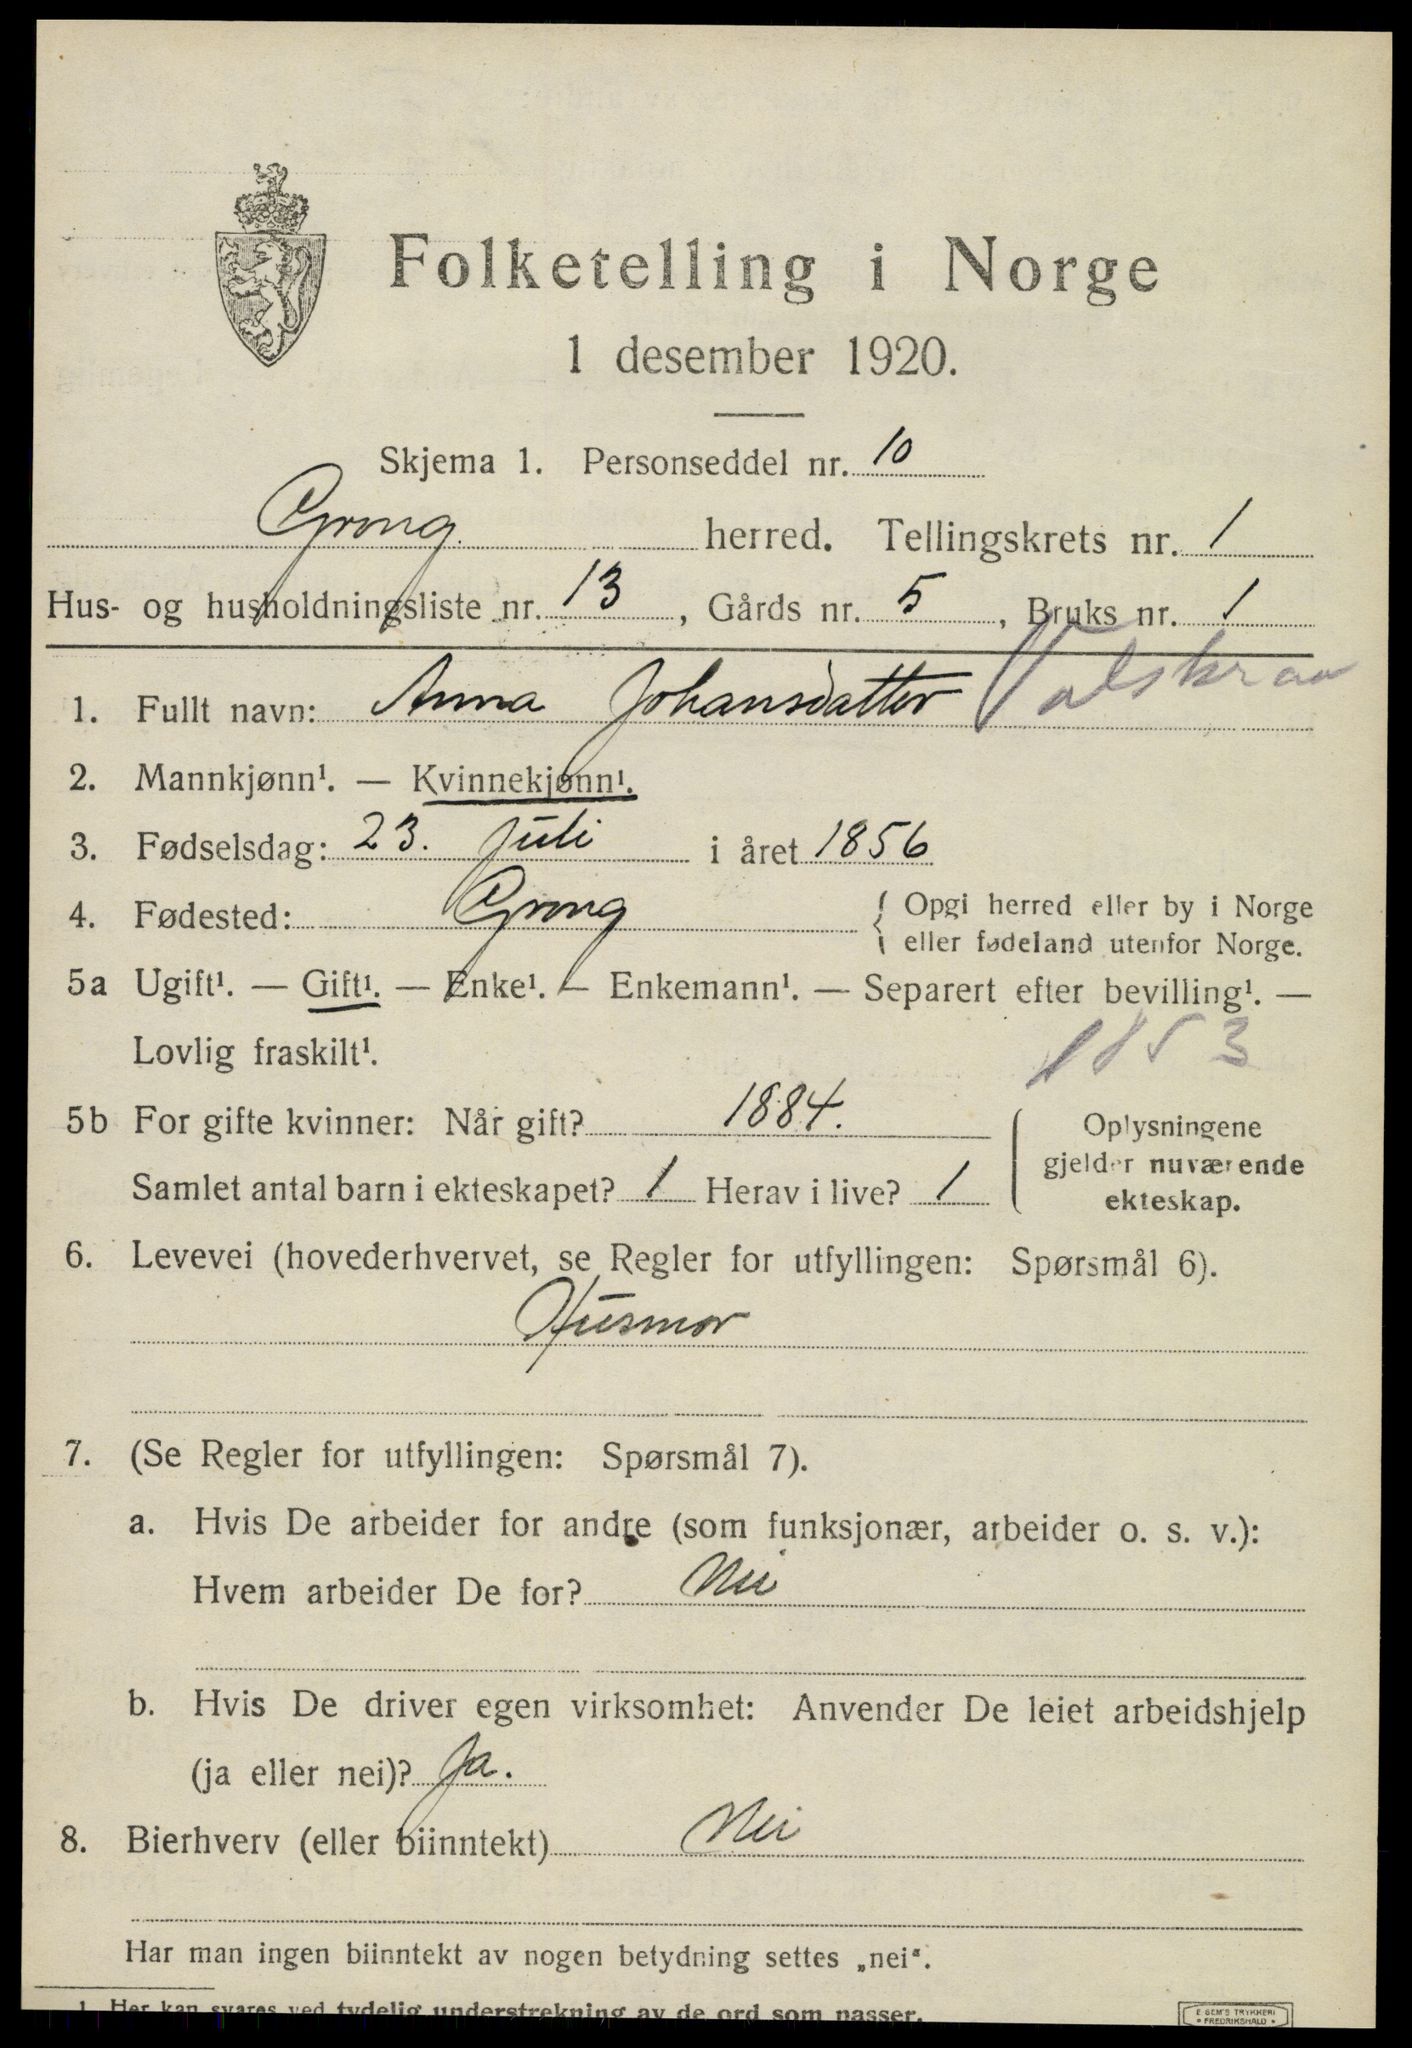 Folketelling i Norge
1 desember 1920.
Skjema 1. Personseddel nr. 10
Grong herred. Tellingskrets nr. 1
Hus- og husholdningsliste nr. 13, Gårds nr. 5, Bruks nr. 1
1. Fullt navn: Anna Johansdatter
2. Mannkjønn¹. — Kvinnekjønn¹.
3. Fødselsdag: 23. Juli i året 1856
4. Fødested: Grong { Opgi herred eller by i Norge
eller fødeland utenfor Norge.
5a Ugift¹. — Gift¹. — Enke¹. — Enkemann¹. — Separert efter bevilling¹. —
Lovlig fraskilt¹. 1853
5b For gifte kvinner: Når gift? 1884. Oplysningene
gjelder nuværende
Samlet antal barn i ekteskapet? 1 Herav i live? 1 ekteskap.
6. Levevei (hovederhvervet, se Regler for utfyllingen: Spørsmål 6).
Husmor
7. (Se Regler for utfyllingen: Spørsmål 7).
a. Hvis De arbeider for andre (som funksjonær, arbeider o. s. v.):
Hvem arbeider De for? Nei
b. Hvis De driver egen virksomhet: Anvender De leiet arbeidshjelp
(ja eller nei)? Ja.
8. Bierhverv (eller biinntekt) Nei
Har man ingen biinntekt av nogen betydning settes „nei".
1. Her kan svares ved tydelig understrekning av de ord som passer.
E SEM'S TRYKKERI
• FREDRIKSHALD •